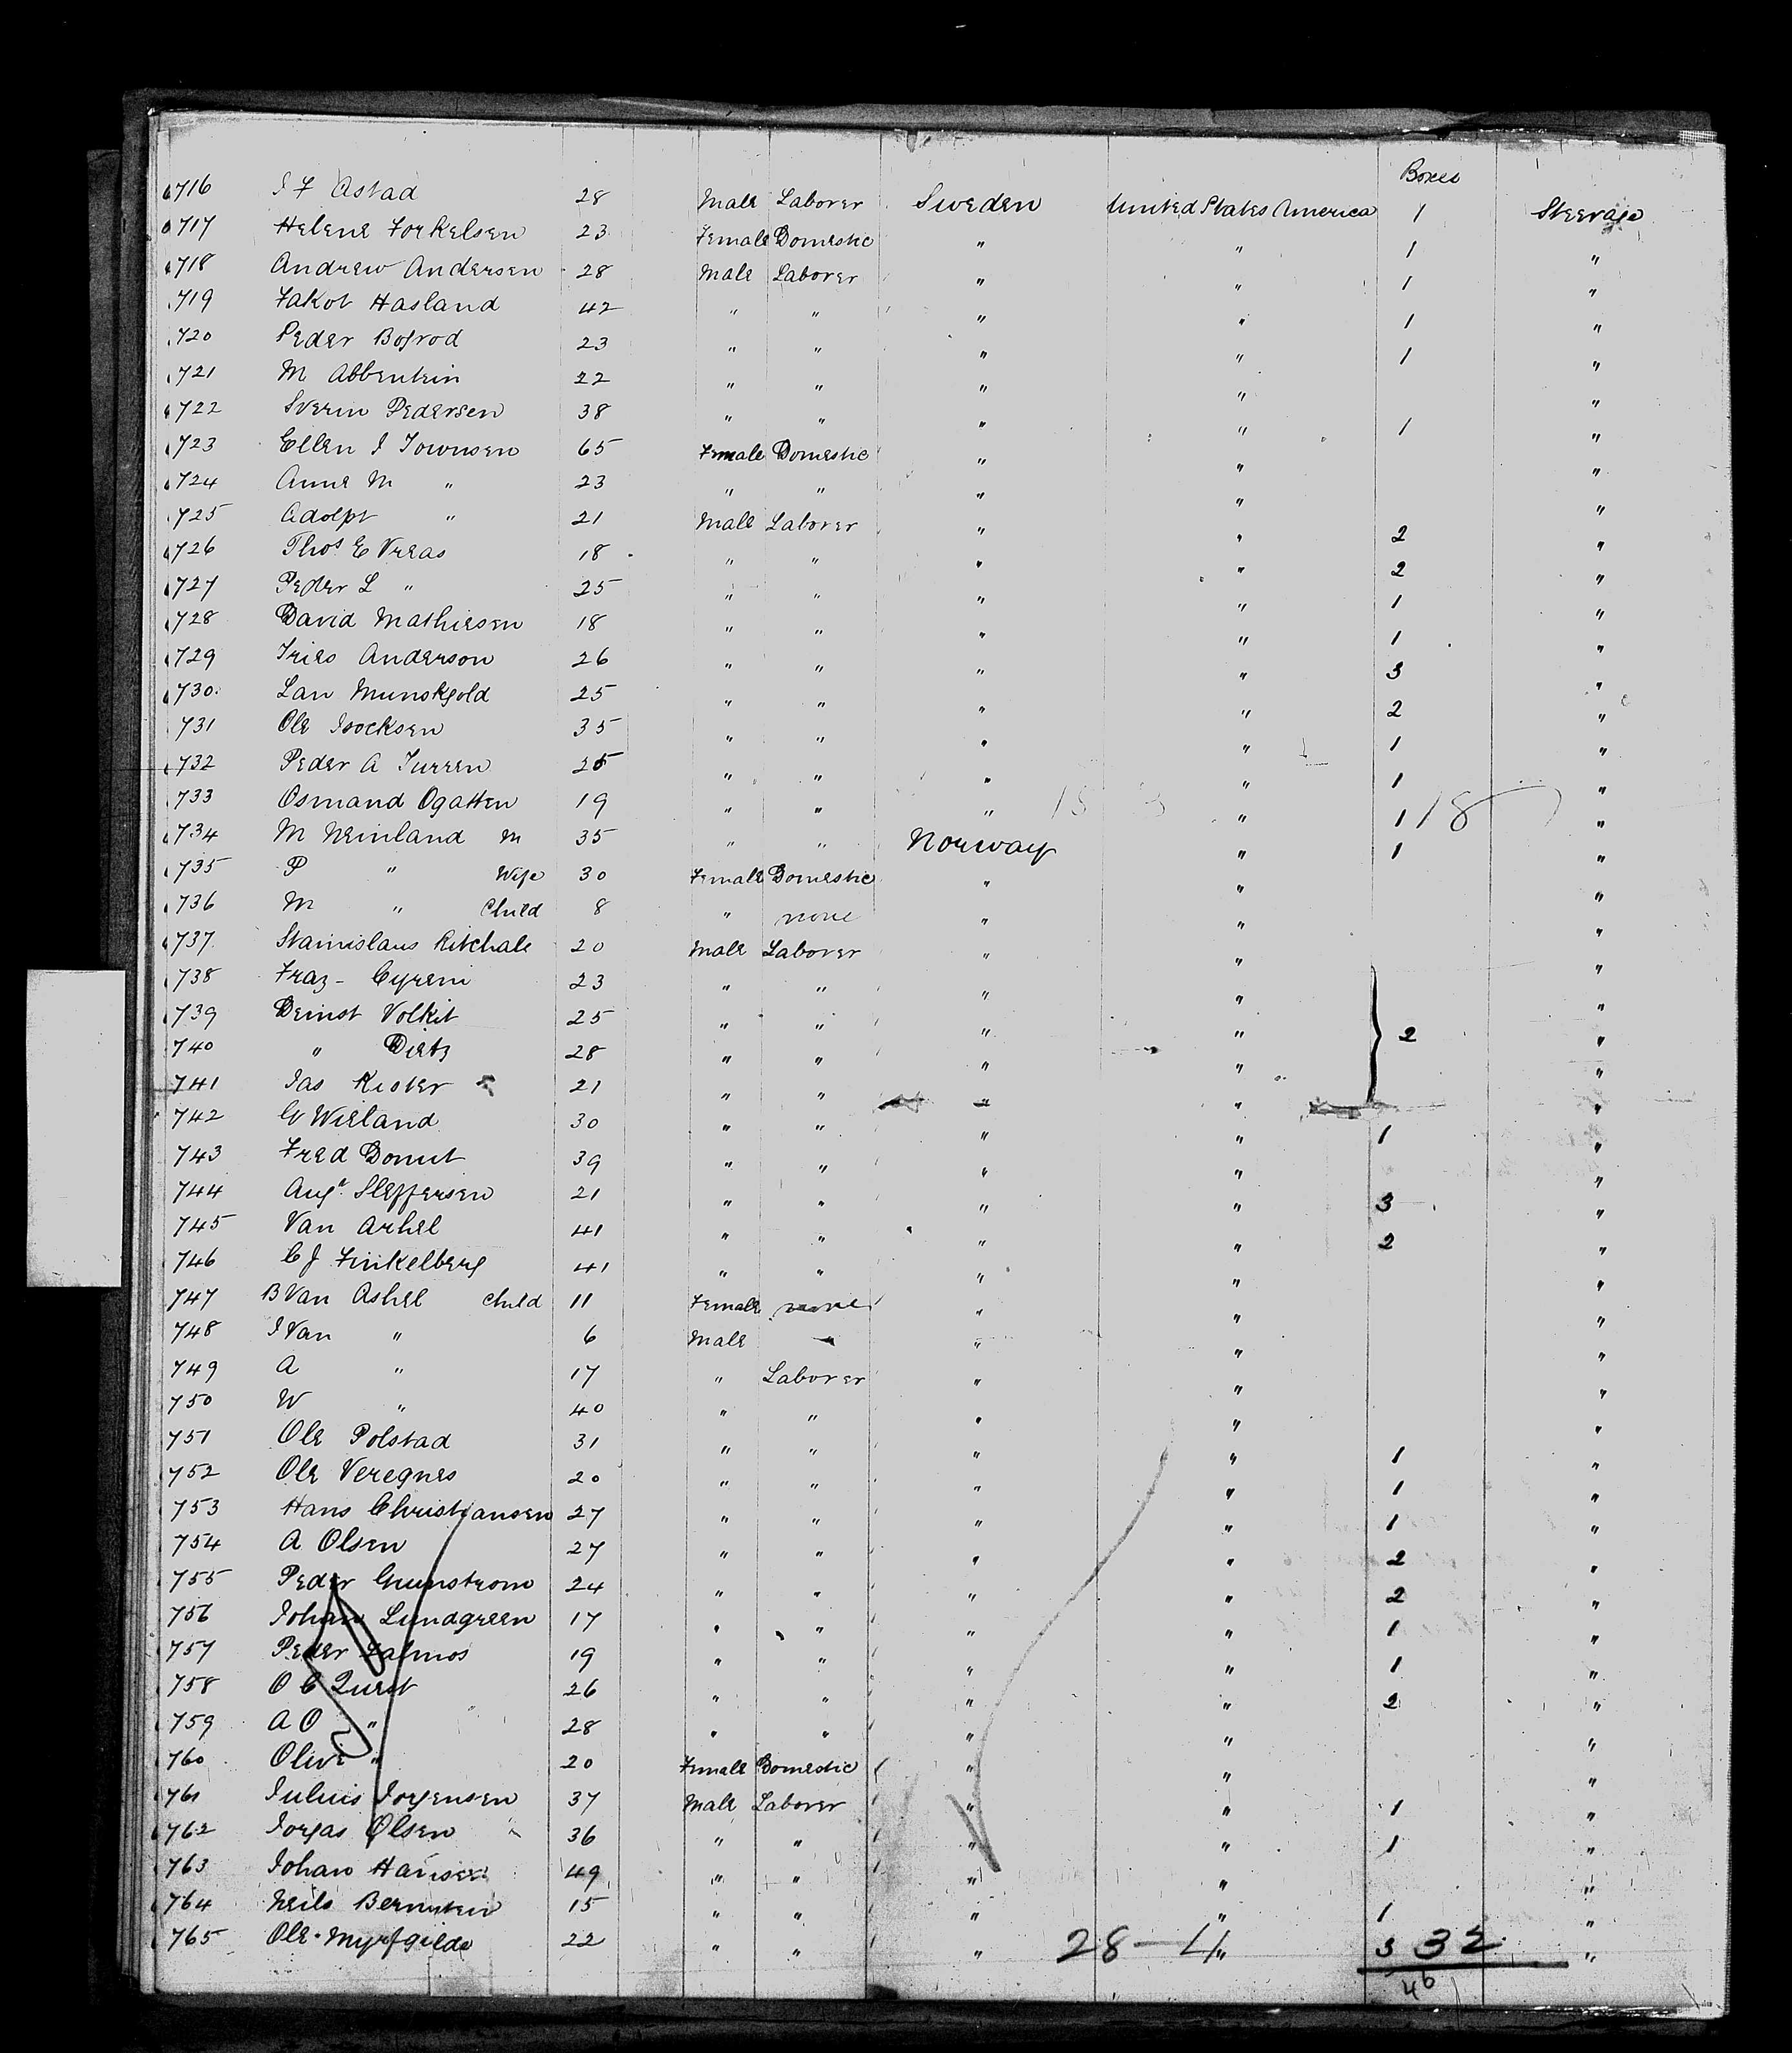 Boxes
716 I F Astad 28 Male Laborer Sweden United States America 1 Steerage
717 Helene Torkelsen 23 Female Domestic " " 1 "
718 Andrew Andersen 28 Male Laborer " " 1 "
719 Jakob Hasland 42 " " " " 1 "
720 Peder Bosrod 23 " " " " 1 "
721 M Abbentein 22 " " " " "
722 Sverin Pedersen 38 " " " " 1 "
723 Ellen I Townsen 65 Female Domestic " " "
724 Anna M " 23 " " " " "
725 Adolph " 21 Male Laborer " " 2 "
726 Thos E Vreas 18 " " " " 2 "
727 Peder L " 25 " " " " 1 "
728 David Mathiesen 18 " " " " 1 "
729 Fries Anderson 26 " " " " 3 "
730 Lan Munskgold 25 " " " " 2 "
731 Ole Isocksen 35 " " " " 1 "
732 Peder A 25 " " " " 1 "
733 Osmand Ogatten 19 " " " " 1 18 "
734 M Neinland M 35 " " Norway " 1 "
735 P " Wife 30 Female Domestic " " "
736 M " Child 8 " none " " "
737 Stanislaus Ritchale 20 Male Laborer " " "
738 Fraz - Cyreni 23 " " " " "
739 Deinst Volkit 25 " " " " 2 "
740 " Dietz 28 " " " " "
741 Jas Kister 21 " " " " "
742 G Wieland 30 " " " " 1 "
743 Fred Bomit 39 " " " " "
744 Augt Steffersen 21 " " " " 3 "
745 Van Arhel 41 " " " " 2 "
746 C J Finkelberg 41 " " " " "
747 B Van Ashel Child 11 Female none " " "
748 I Van " 6 Male " " " "
749 A " 17 " Laborer " " "
750 W " 40 " " " " "
751 Ole Polstad 31 " " " " 1 "
752 Ole Veregnes 20 " " " " 1 "
753 Hans Christiansen 27 " " " " 1 "
754 A Olsen 27 " " " " 2 "
755 Peder Grunstrom 24 " " " " 2 "
756 Johan Lundgreen 17 " " " " 1 "
757 Peder 19 " " " " 1 "
758 O C Qurst 26 " " " " 2 "
759 A O " 28 " " " " "
760 Olive " 20 Female Domestic " " "
761 Julius Jorgensen 37 Male Laborer " " 1 "
762 Jorgas Olsen 36 " " " " 1 "
763 Johan Hansen 49 " " " " "
764 Neils Berntsen 15 " " " " 1 "
765 Ole Myrfgilde 22 " " " 28-4 " 3 32 "
46